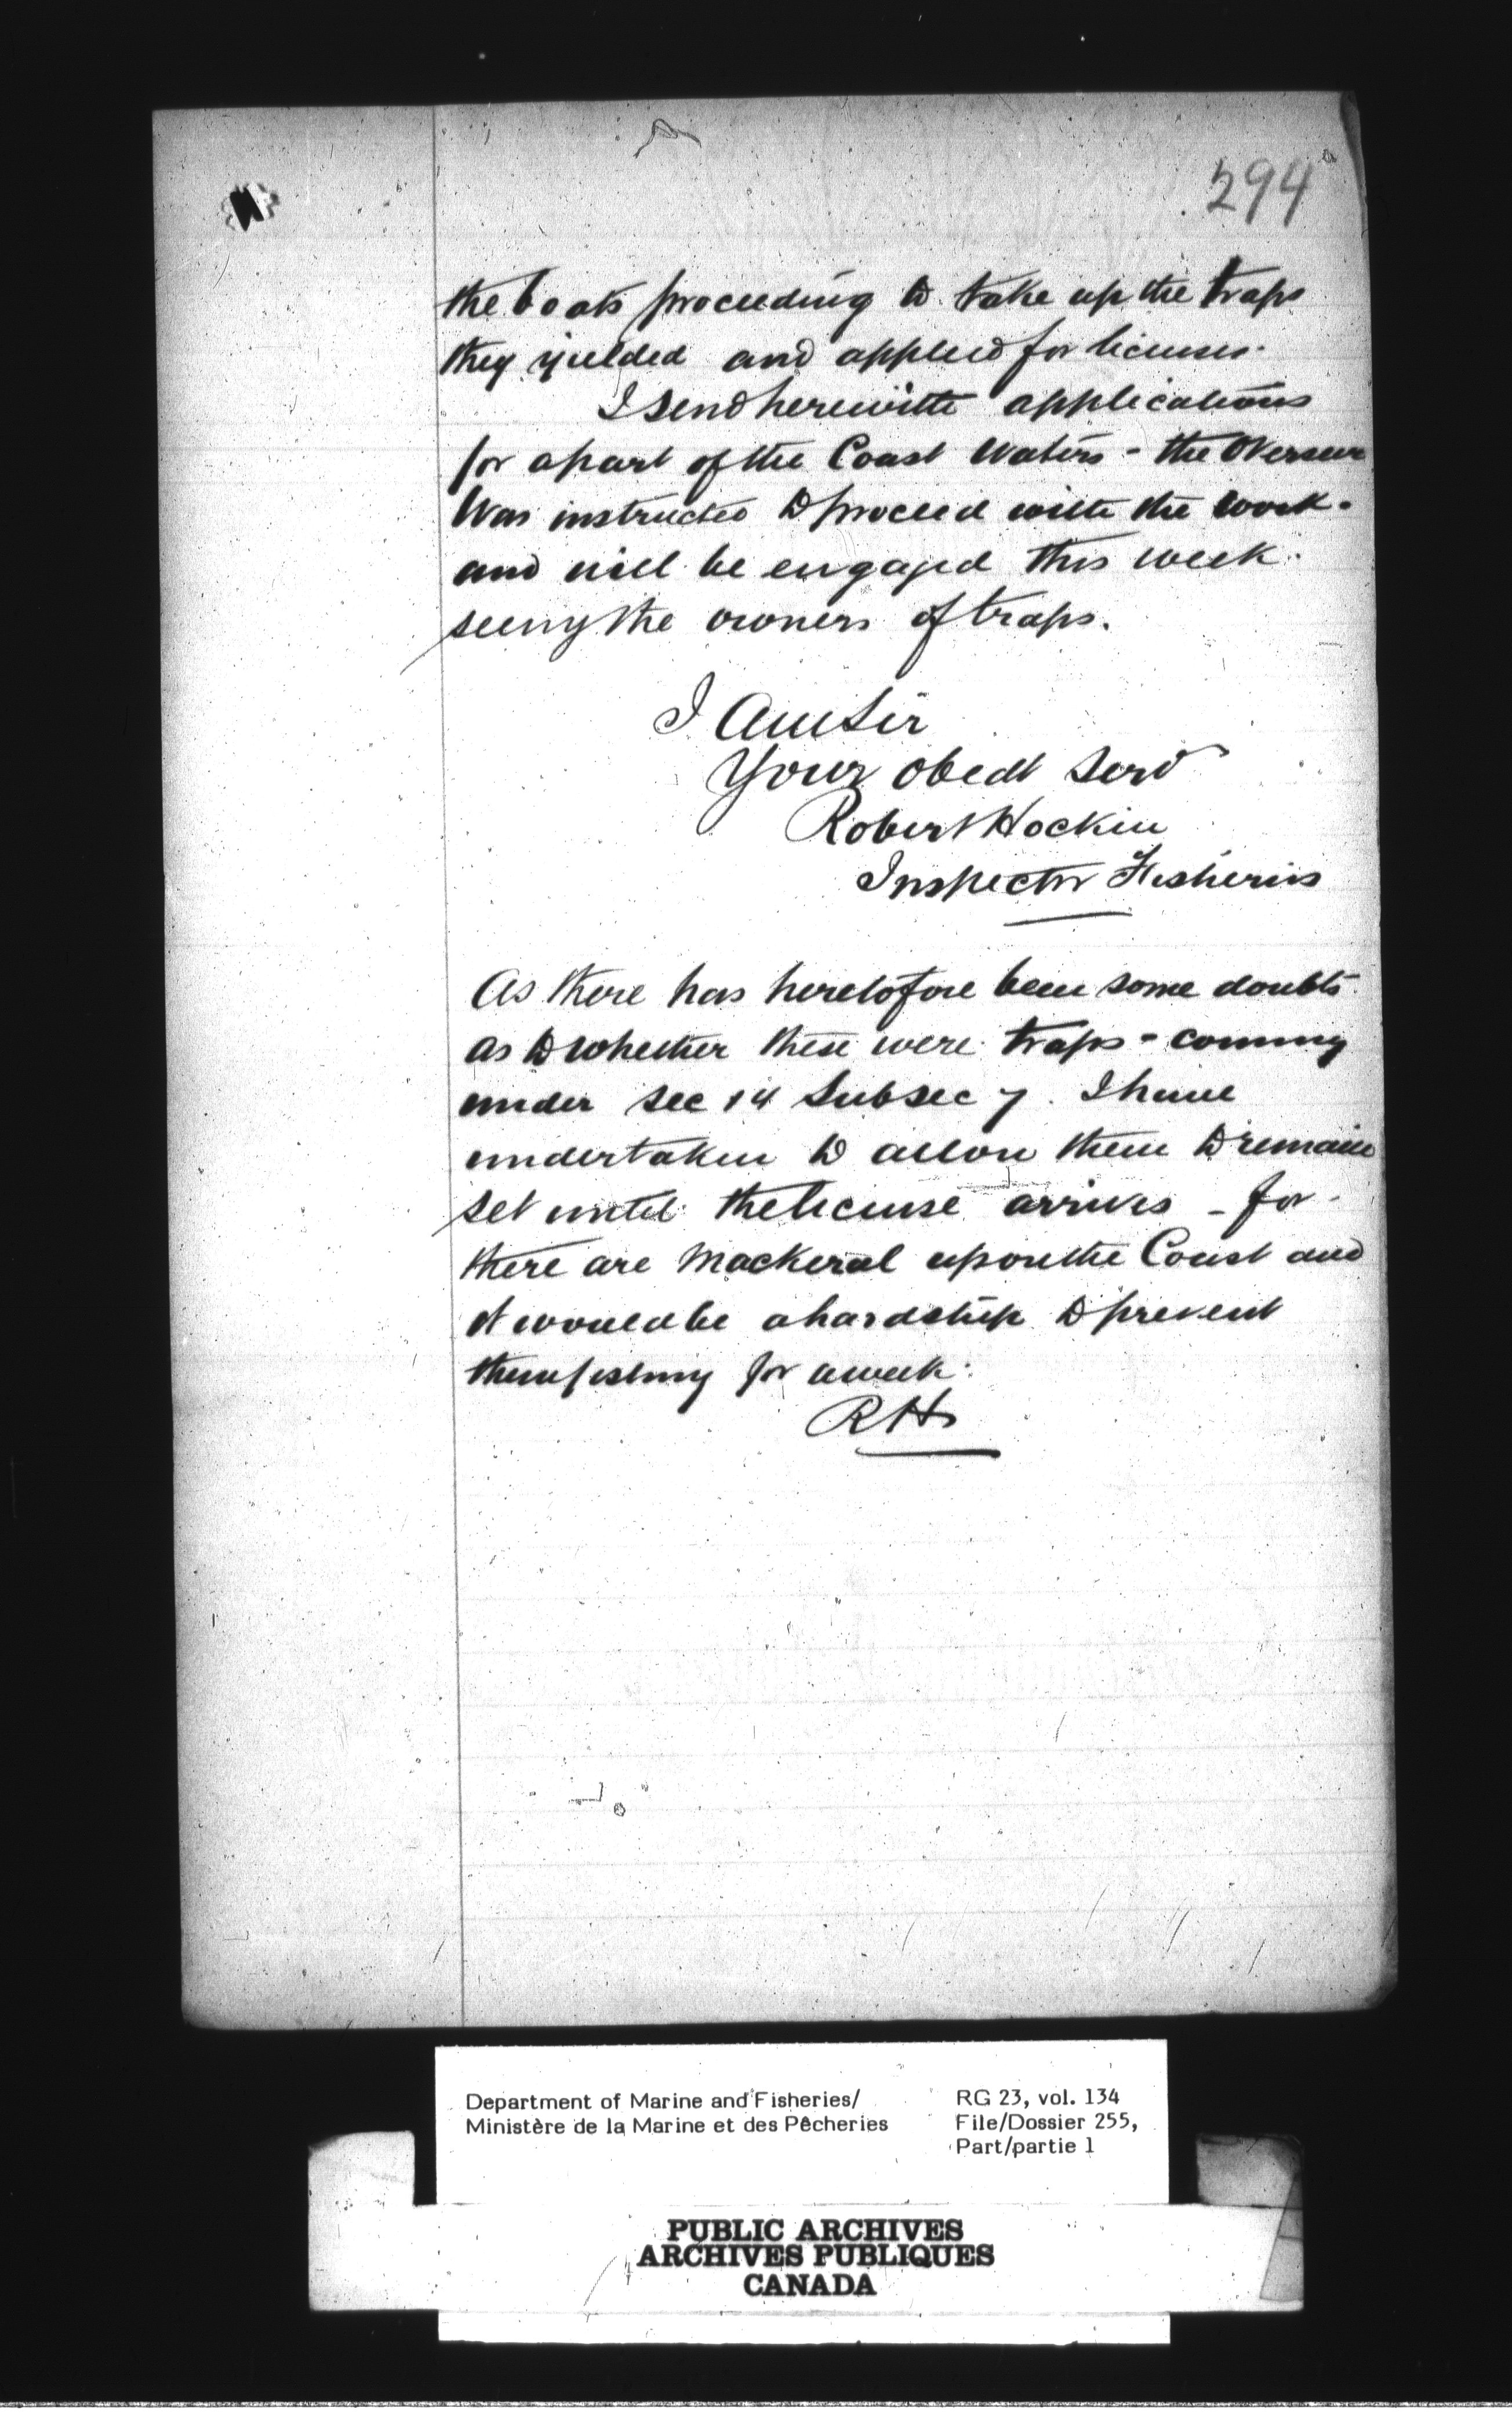 294
the boats proceeding to take up the traps
they yielded and applied for licenses.
I send herewith applications
for a part of the Coast Waters - the Overseer
Was instructed to proceed with the work.
and will be engaged this week
seeing the owners of traps.
I am Sir
Your obedt Servt
Robert Hockin
Inspector Fisheries
As there has heretofore been some doubts
as to whether these were traps - coming
under Sec 14 Subsec 7. I have
undertaken to allow them to remain
set until the license arrives - for
there are Mackeral upon the Coast and
it would be a hardship to prevent
them fishing for a week.
RH
Department of Marine and Fisheries/
Ministère de la Marine et des Pêcheries
RG 23, vol. 134
File/Dossier 255,
Part/partie 1
PUBLIC ARCHIVES
ARCHIVES PUBLIQUES
CANADA